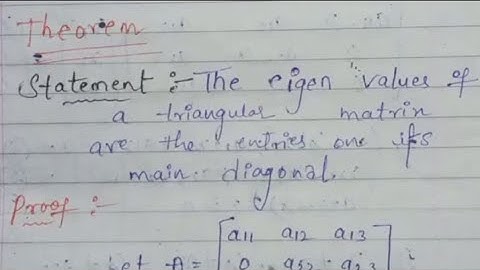 Theorem
Statement :- The eigen values of
a triangular matrin
are the entries one its
main diagonal.
Proof :-
a11 a12 a13
Let A = 0 a22 a23